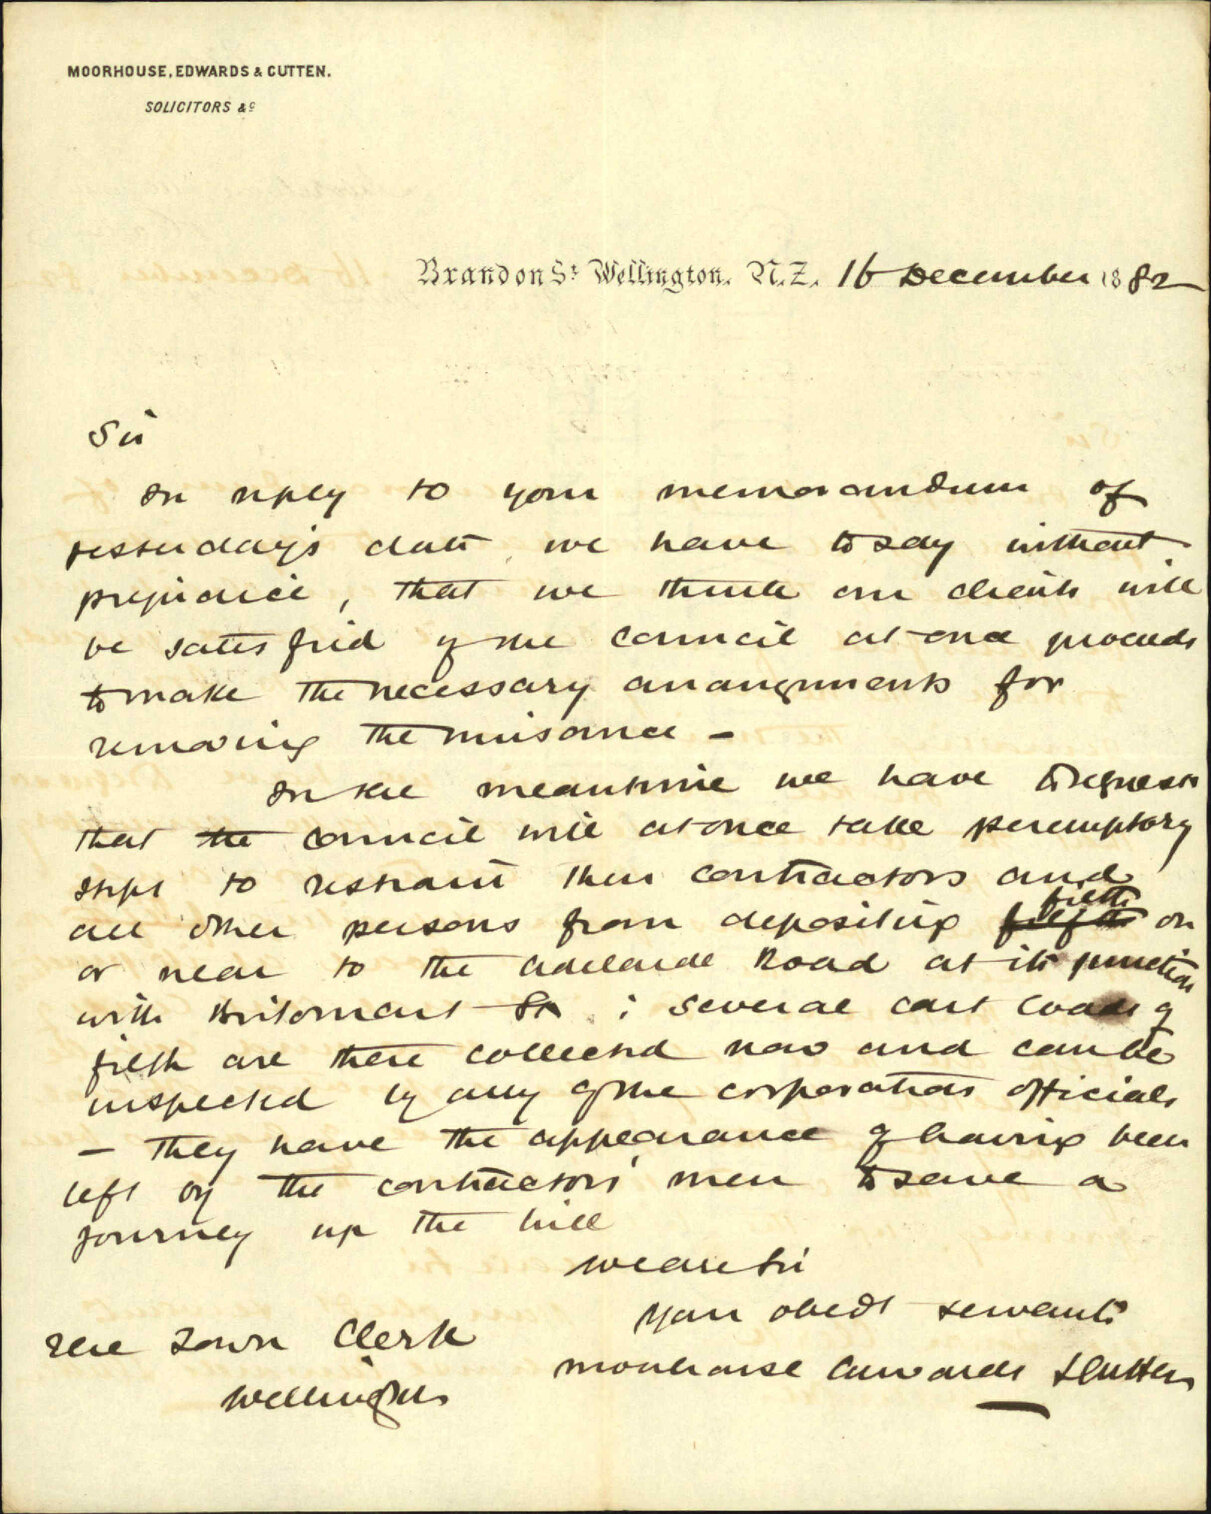 MOORHOUSE, EDWARDS & CUTTEN.
SOLICITORS &c
Brandon St Wellington, N.Z. 16 December 1882
Sir
In reply to your memorandum of
yesterday's date we have to say without
prejudice, that we think our clients will
be satisfied if the Council at once proceeds
to make the necessary arrangements for
removing the nuisance –
In the meantime we have to request
that the Council will at once take peremptory
steps to restrain their contractors and
all other persons from depositing filfth filth on
or near to the Adelaide Road at its junction
with Britomart St ; several cart loads of
filth are there collected now and can be
inspected by any of the corporation officials
– They have the appearance of having been
left by the contractors' men to save a
journey up the hill
We are Sir
Your obedt servants
Moorhouse Edwards & Cutten
The Town Clerk
Wellington